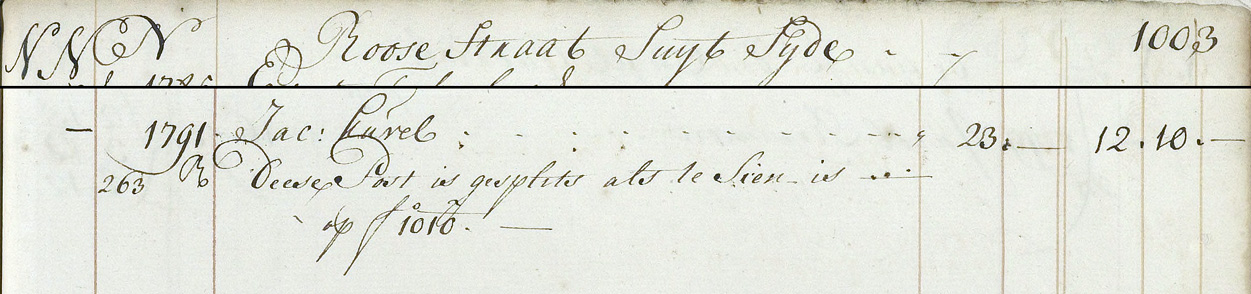 NN N Roose Straat Suyt Syde - 1003
— 1791 Jac: Curel : - - - - 23. — 12. 10. —
263 R Deese Post is gesplits als te Sien is ...
op fo 1010. —